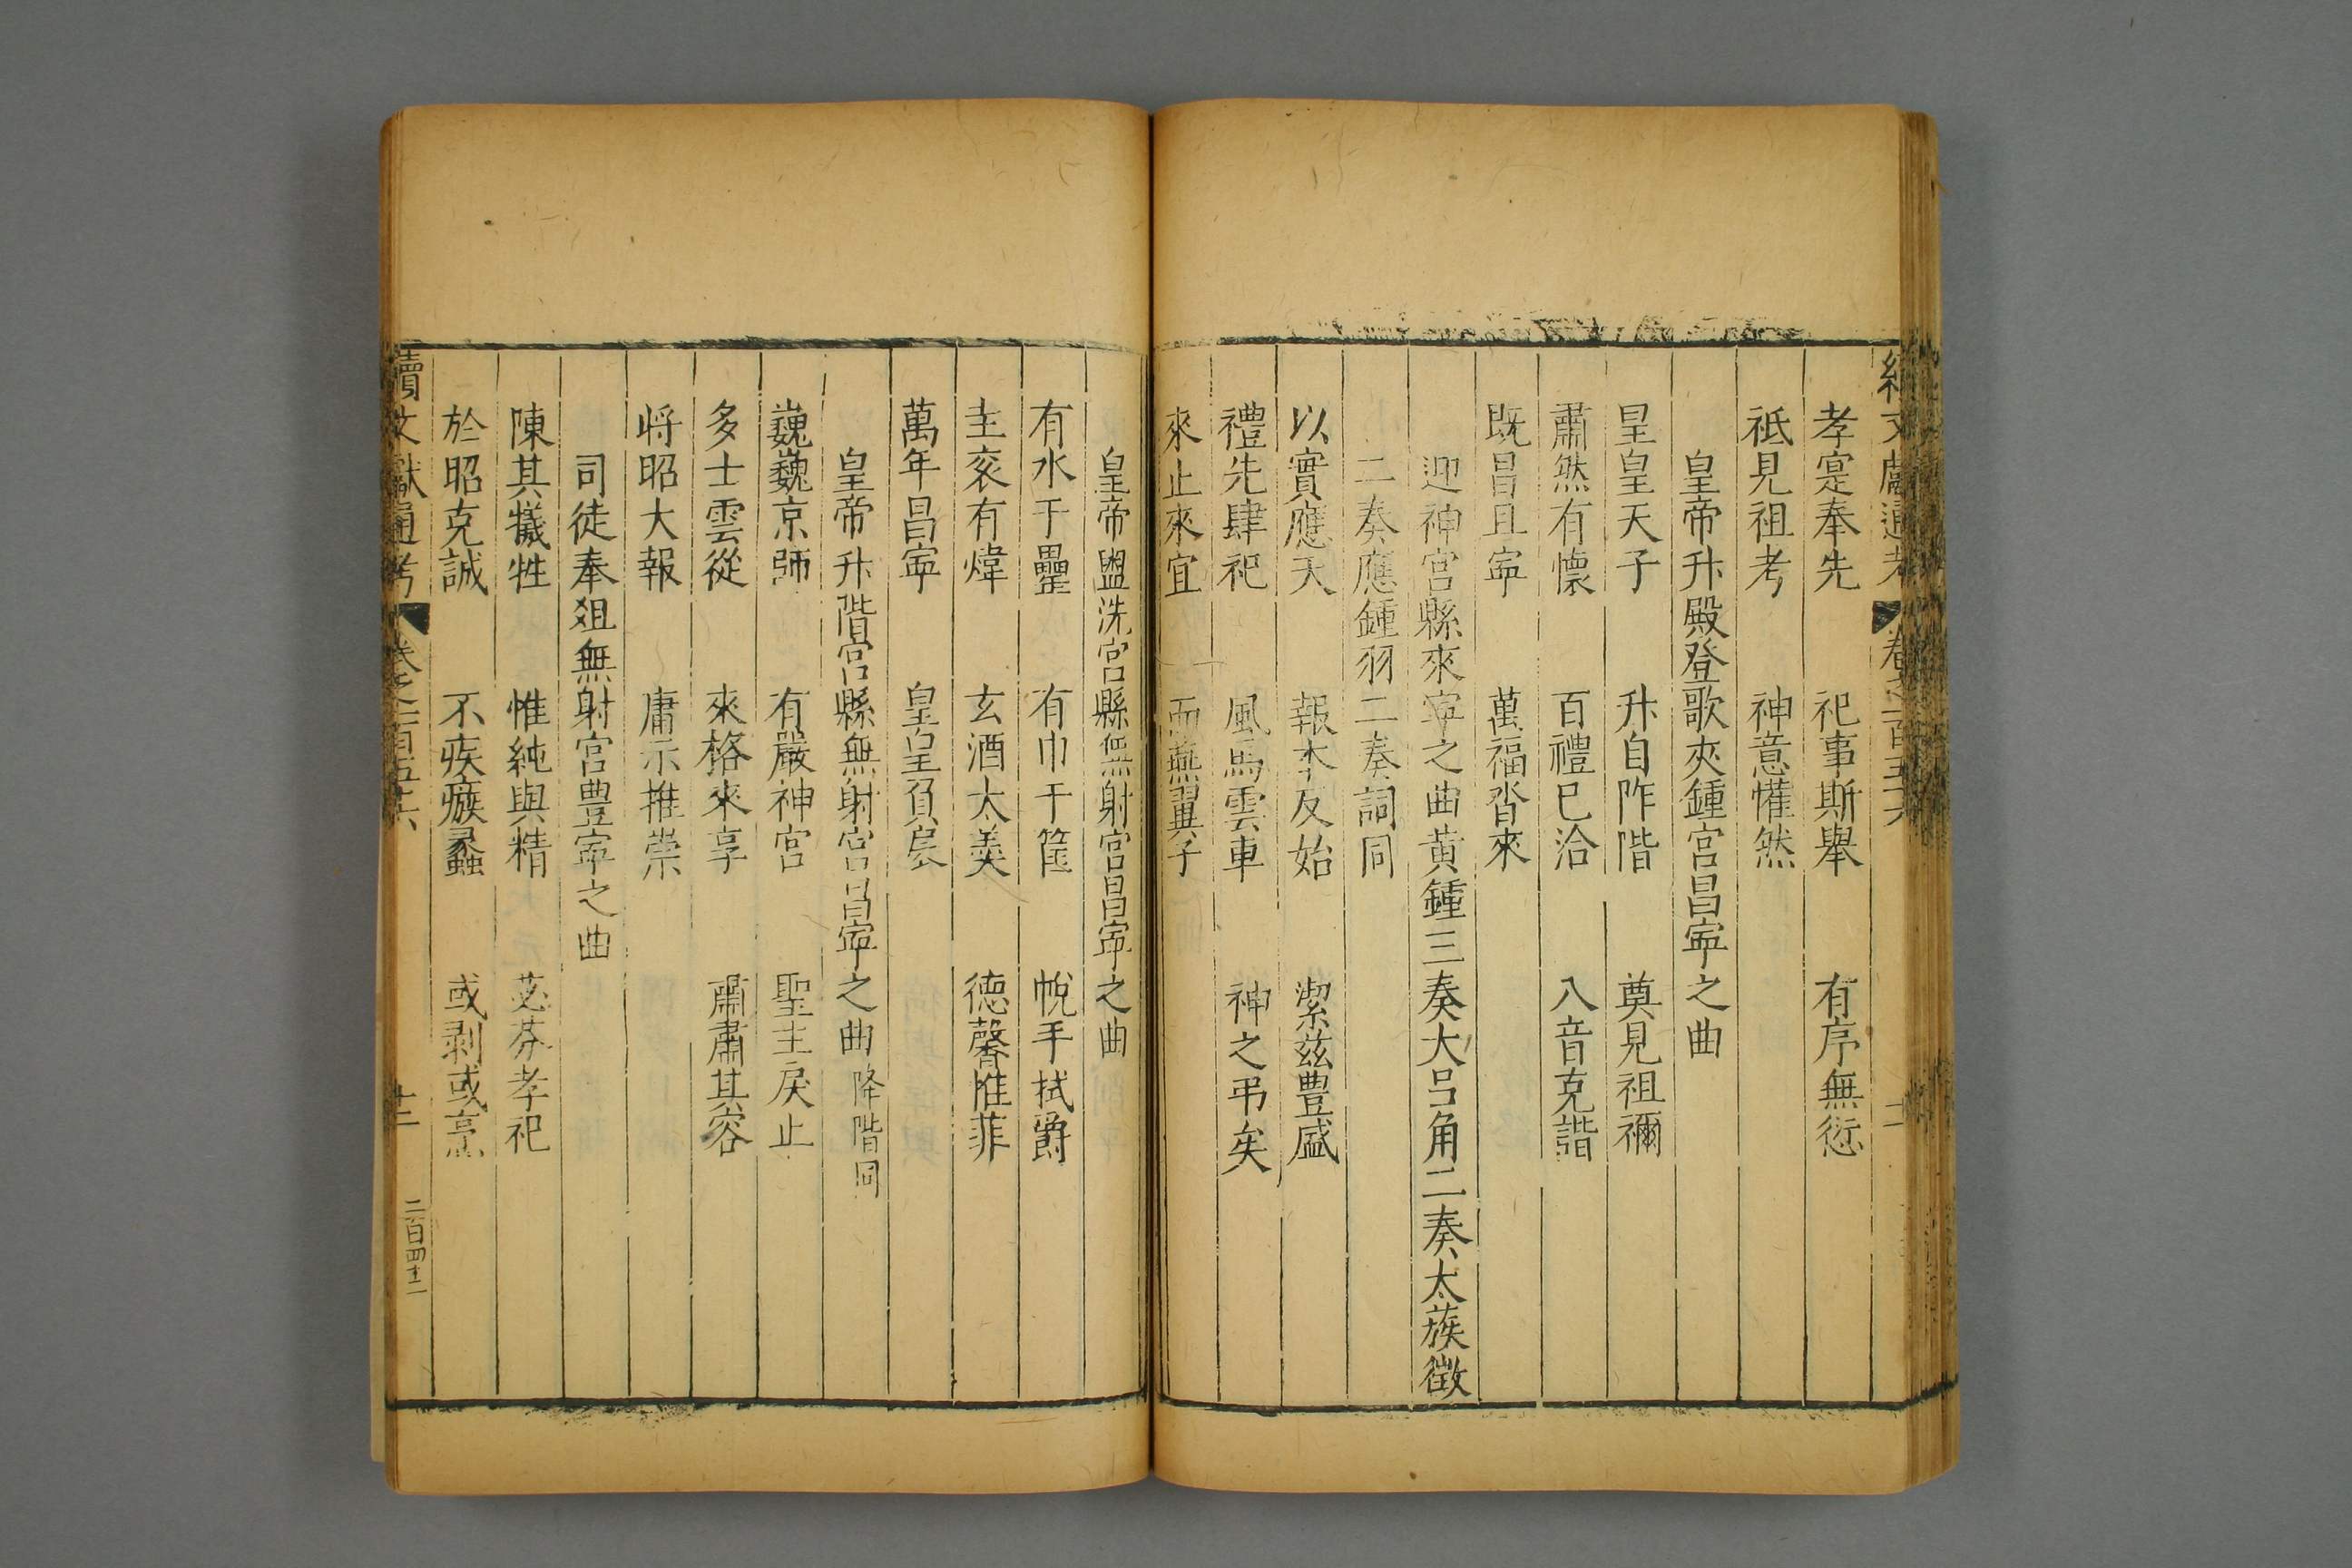 續文獻通考 卷之一百五十六 十一
孝寔奉先 祀事斯舉 有序無愆
祗見祖考 神意懽然
皇帝升殿登歌夾鍾宮昌寧之曲
皇皇天子 升自阼階 奠見祖禰
肅然有懷 百禮巳洽 八音克諧
既昌且寧 萬福沓來
迎神宮縣來寧之曲黃鍾三奏大呂角二奏太蔟徵
二奏應鍾羽二奏詞同
以實應天 報本反始 潔茲豊盛
禮先肆祀 風馬雲車 神之弔矣
來止來宜 而燕翼子
皇帝盥洗宮縣無射宮昌寧之曲
有水于罍 有巾于篚 帨手拭爵
圭衮有煒 玄酒太羮 德馨惟菲
萬年昌寧 皇皇負扆
皇帝升階宮縣無射宮昌寧之曲降階同
巍巍京師 有嚴神宮 聖主戾止
多士雲從 來格來享 肅肅其容
将昭大報 庸示推崇
司徒奉俎無射宮豊寧之曲
陳其犧牲 惟純與精 苾芬孝祀
於昭克誠 不疾瘯蠡 或剥或烹
續文獻通考 卷之一百五十六 十二 二百四十二